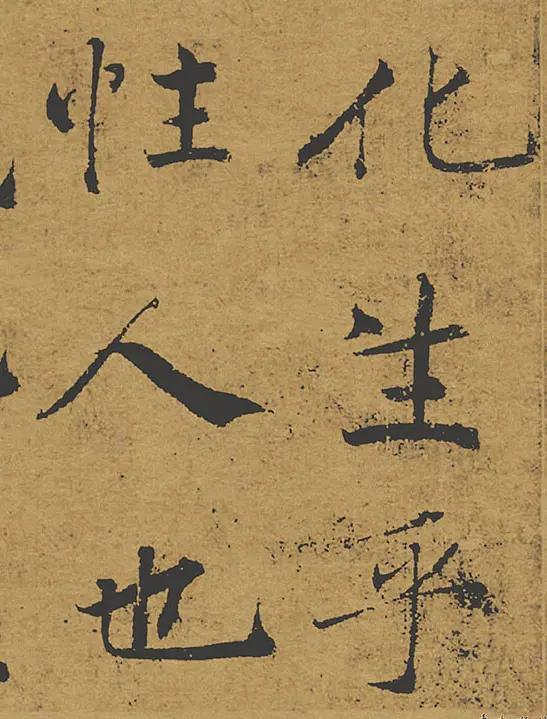 化生乎
性人也